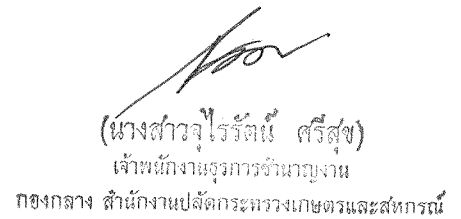 (นางสาวจุไรรัตน์ ศรีสุข)
เจ้าพนักงานธุรการชำนาญงาน
กองกลาง สำนักงานปลัดกระทรวงเกษตรและสหกรณ์